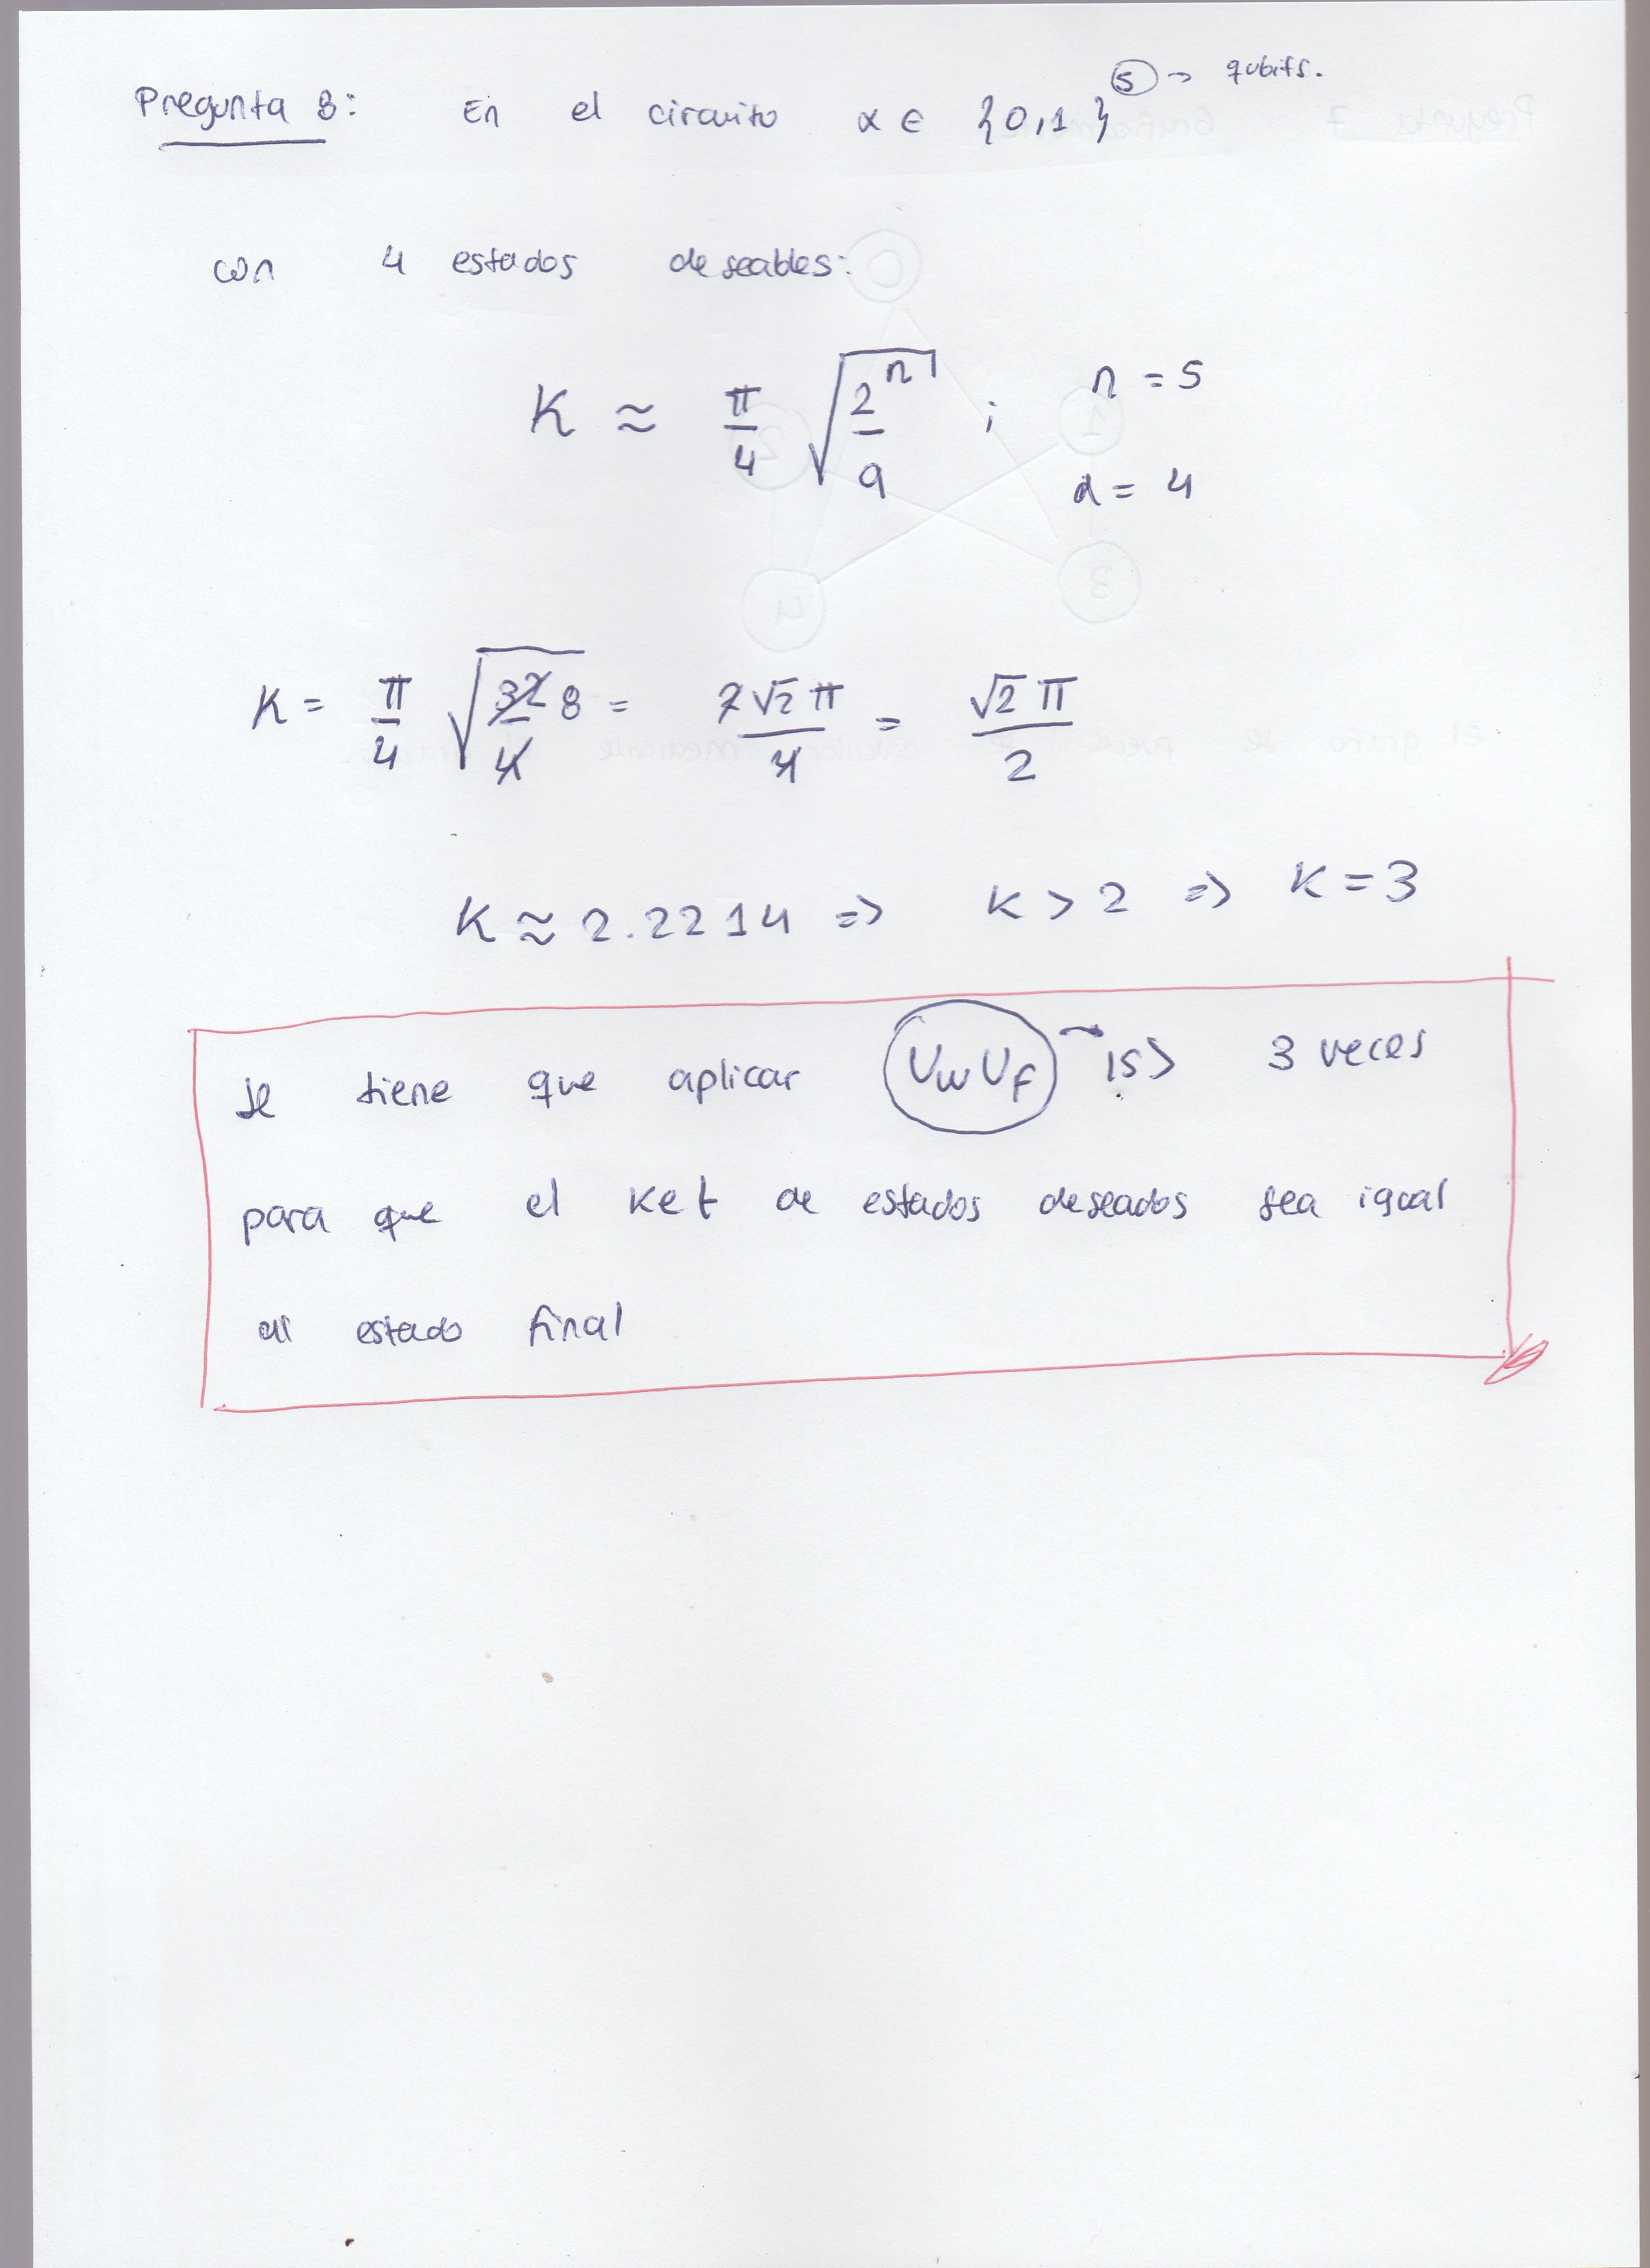 Pregunta 8: En el circuito x ∈ {0,1}^5 → qubits.
con 4 estados deseables:
K ≈ π/4 √(2^n/a) ; n = 5
a = 4
K = π/4 √(32/4) 8 = 2√2 π/4 = √2 π/2
K ≈ 2.2214 => K > 2 => K = 3
se tiene que aplicar UwUf → |s> 3 veces
para que el ket de estados deseados sea igual
al estado final